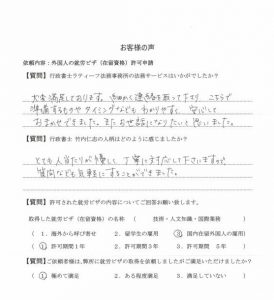 お客様の声
依頼内容：外国人の就労ビザ（在留資格）許可申請
【質問】行政書士ラティーフ法務事務所の法務サービスはいかがでしたか？
大変満足しております。細めく連絡を取って下さり、こちらで
準備するものやタイミングなどもわかりやすく、安心して
おまかせできました。またお世話になりたいと思いました。
【質問】行政書士 竹内仁志の人柄はどのように感じましたか？
とても人当たりが優しく、丁寧に対応して下さいますので
質問なども気軽にすることができました。
【質問】許可された就労ビザの内容についてご回答お願い致します。
取得した就労ビザ（在留資格）の名称 （ 技術・人文知識・国際業務 ）
1．海外から呼び寄せ 2．留学生の雇用 3．国内在留外国人の雇用
1．許可期間1年 2．許可期間3年 3．許可期間 5年
【質問】ご依頼者様は、弊所に就労ビザの取得を依頼しましたがご満足いただけましたか？
1．極めて満足 2．ある程度満足 3．満足していない